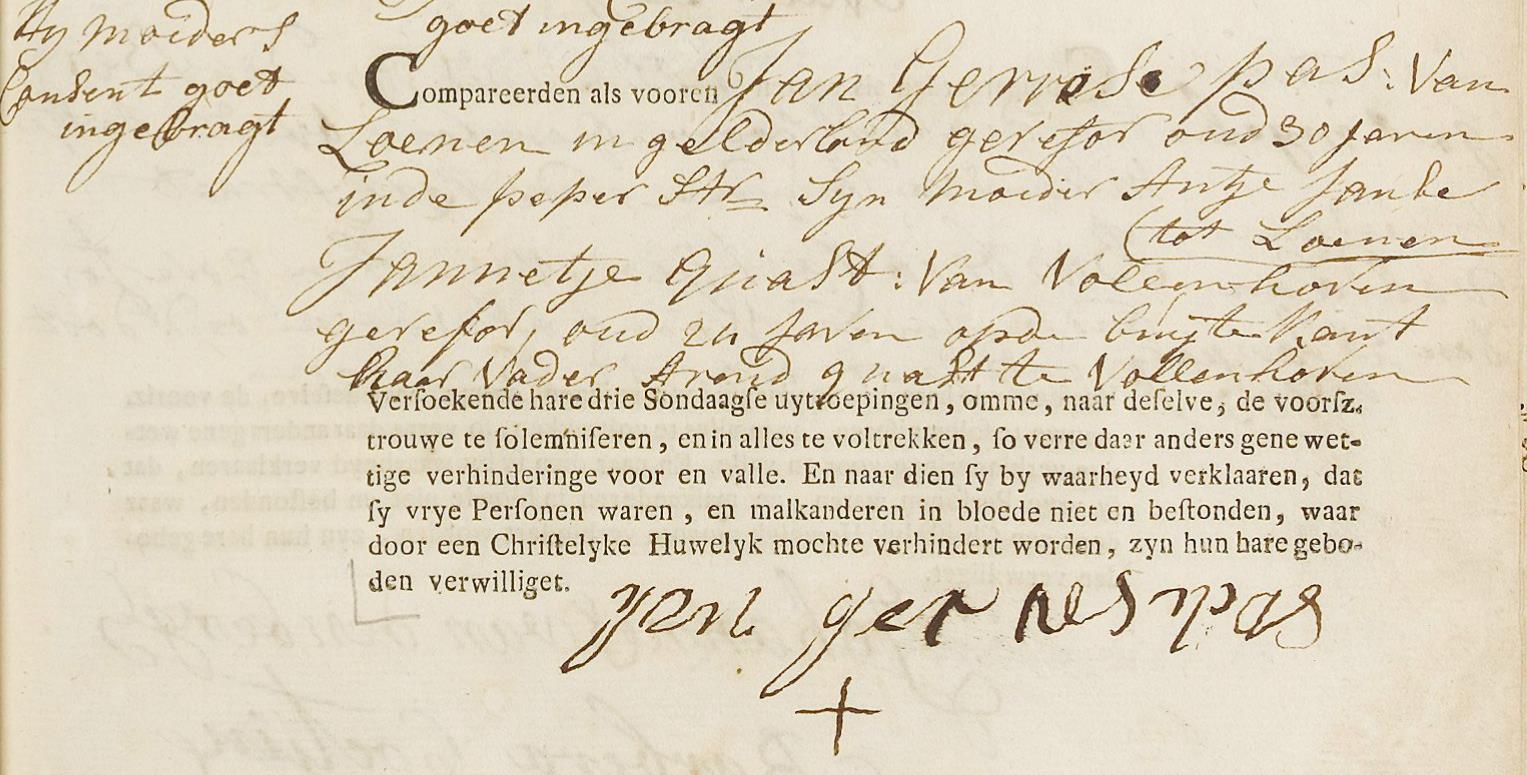 Hy moeders
Consent goet
ingebragt
goet ingebragt
Compareerden als vooren Jan Gerritse pas: Van
Loenen in gelderland gerefor oud 30 Jaren
inde peper Str Syn Moeder Antje Janse
(tot Loenen
Jannetje Quast: Van Vollenhoven
gerefor, oud 24 Jaren opde buyte kant
haar Vader Arend quast te Vollenhoven
Verſoekende hare drie Sondaagſe uytroepingen, omme, naar deſelve, de voorſz.
trouwe te ſolemniſeren, en in alles te voltrekken, ſo verre daar anders gene wet-
tige verhinderinge voor en valle. En naar dien ſy by waarheyd verklaaren, dat
ſy vrye Perſonen waren, en malkanderen in bloede niet en beſtonden, waar
door een Chriſtelyke Huwelyk mochte verhindert worden, zyn hun hare gebo-
den verwilliget.
jan gerresen pas
+